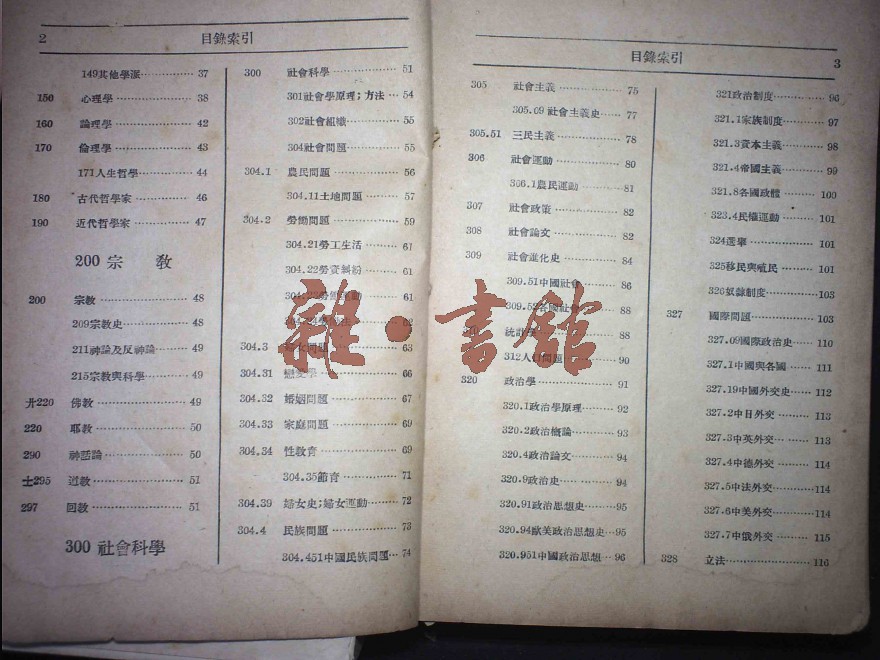 2
目錄索引
149其他學派 37
150 心理學 38
160 論理學 42
170 倫理學 43
171人生哲學 44
180 古代哲學家 46
190 近代哲學家 47
200 宗教
200 宗教 48
209宗教史 48
211神論及反神論 49
215宗教與科學 49
廾220 佛教 49
220 耶教 50
290 神話論 50
士295 道教 51
297 回教 51
300 社會科學
300 社會科學 51
301社會學原理;方法 54
302社會組織 55
304社會問題 55
304.1 農民問題 56
304.11土地問題 57
304.2 勞働問題 59
304.21勞工生活 61
304.22勞資糾紛 61
61
62
304.3 婦女問題 63
304.31 戀愛學 66
304.32 婚姻問題 67
304.33 家庭問題 69
304.34 性教育 69
304.35節育 71
304.39 婦女史;婦女運動 72
304.4 民族問題 73
304.451中國民族問題 74
目錄索引
3
305 社會主義 75
305.09社會主義史 77
305.51 三民主義 78
306 社會運動 80
306.1農民運動 81
307 社會政策 82
308 社會論文 82
309 社會進化史 84
309.51中國社會 86
309.52各國社會 88
統計學 88
312人口問題 90
320 政治學 91
320.1政治學原理 92
320.2政治概論 93
320.4政治論文 94
320.9政治史 94
320.91政治思想史 95
320.94歐美政治思想史 95
320.951中國政治思想 96
321政治制度 96
321.1家族制度 97
321.3資本主義 98
321.4帝國主義 99
321.8各國政體 100
323.4民權運動 101
324選舉 101
325移民與殖民 101
326奴隸制度 103
327 國際問題 103
327.09國際政治史 110
327.1中國與各國 111
327.19中國外交史 112
327.2中日外交 113
327.3中英外交 113
327.4中德外交 114
327.5中法外交 114
327.6中美外交 114
327.7中俄外交 115
328 立法 116
雜·書館